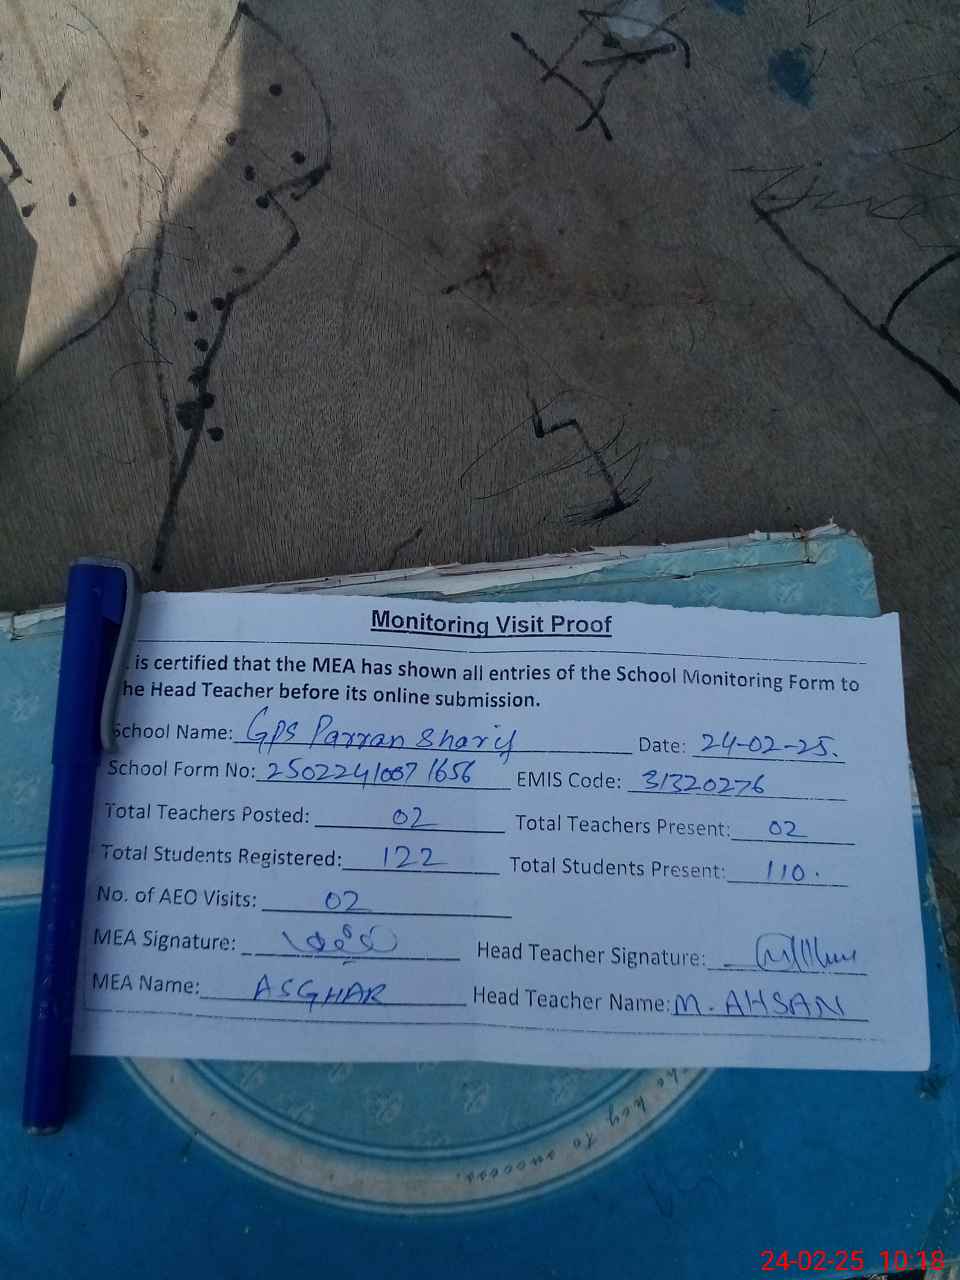 Monitoring Visit Proof
is certified that the MEA has shown all entries of the School Monitoring Form to
he Head Teacher before its online submission.
School Name: GPS Parran Sharif Date: 24-02-25.
School Form No: 25022410071656 EMIS Code: 31320276
Total Teachers Posted: 02 Total Teachers Present: 02
Total Students Registered: 122 Total Students Present: 110.
No. of AEO Visits: 02
MEA Signature: Head Teacher Signature:
MEA Name: ASGHAR Head Teacher Name: M. AHSAN
the key to success.
24-02-25 10:18